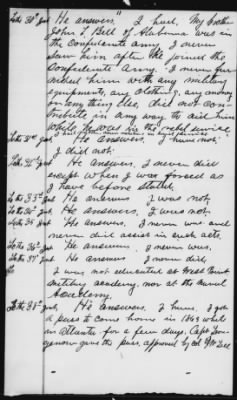 To the 30th Int. He answers, I had. My brother
John T. Bell of Alabama was in
the Confederate army. I never
saw him after he joined the
Confederate Army. I never fur-
nished him with any military
equipments, any clothing, any money
or any thing else, did not con-
tribute in any way to aid him
while he was in the rebel service.
He answers I have not.
I did not.
He answers, I never did
except when I was forced as
I have before stated.
To the 33d Int. He answers I was not.
To the 34th Int. He answers, I was not.
To the 35 Int. He answers, I never was and
never did assist in such acts.
To the 36th Int. He answers, I never was.
To the 37th Int. He answers I never did,
I was not educated at West Point
military academy, nor at the naval
Academy.
To the 38th Int. He answers, I have, I got
a pass to come home in 1863 while
in Atlanta for a few days. Capt
gave the pass, approved by Col G W Lee